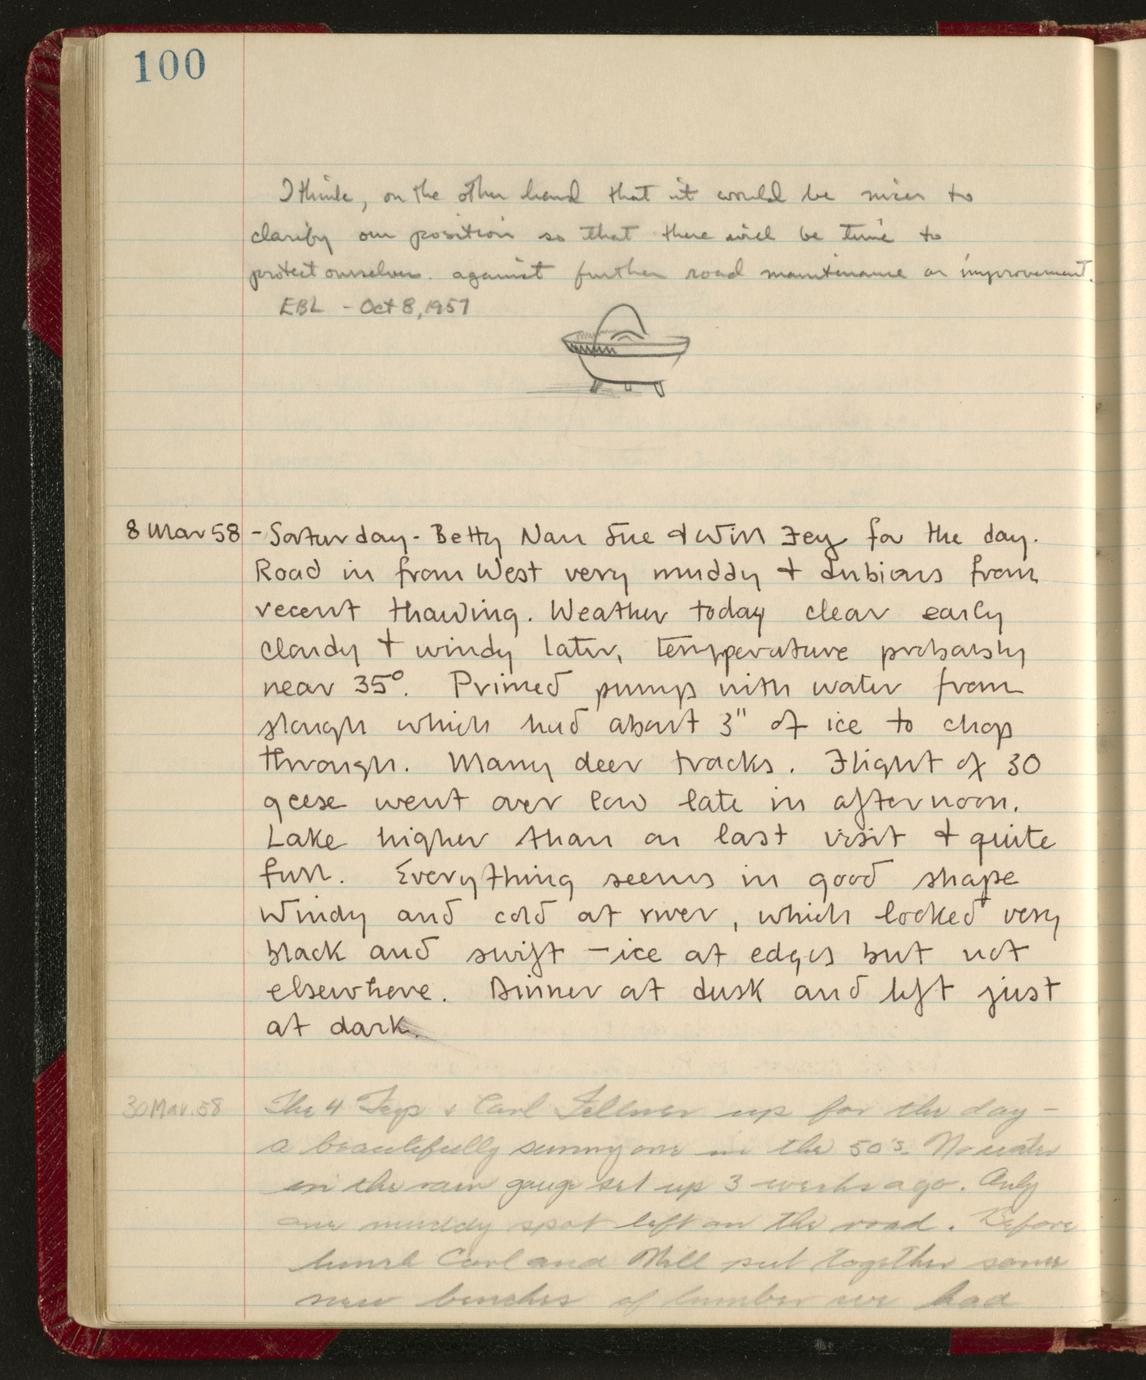 100
I think, on the other hand that it would be nicer to
clarify our position so that there will be time to
protect ourselves. against further road maintenance or improvement.
EBL - Oct 8, 1957
8 Mar 58 - Saturday - Betty Nan Sue & Will Fey for the day.
Road in from West very muddy & dubious from
recent thawing. Weather today clear early
cloudy & windy later, temperature probably
near 35°. Primed pump with water from
slough which had about 3" of ice to chop
through. Many deer tracks. Flight of 30
geese went over low late in afternoon.
Lake higher than on last visit & quite
full. Everything seems in good shape
Windy and cold at river, which looked very
black and swift - ice at edges but not
elsewhere. Dinner at dusk and left just
at dark.
30 Mar. 58 The 4 Feys & Carl Fellner up for the day -
a beautifully sunny one in the 50's. No water
in the rain gauge set up 3 weeks ago. Only
one muddy spot left on the road. Before
lunch Carl and Will put together some
new benches of lumber we had